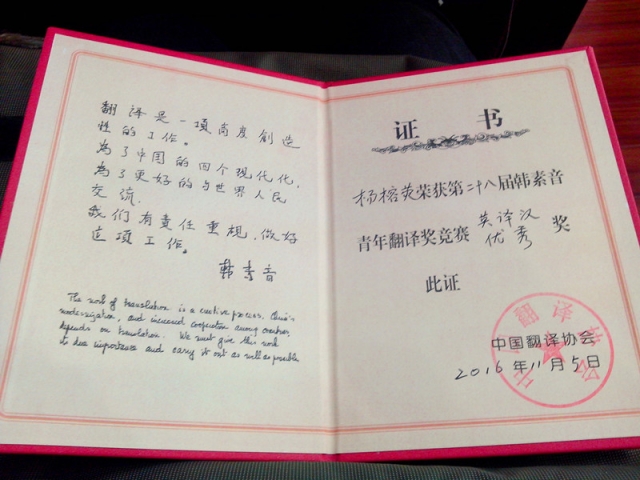 翻译是一項高度創造
性的工作。
为了中国的四个现代化,
为了更好的与世界人民
交流.
我们有责任重視,做好
这项工作。
韩素音
The work of translation is a creative process. China's
modernization, and increased cooperation among countries,
depends on translation. We must give this work
its due importance and carry it out as well as possible
证 书
杨榕荧荣获第二十八届韩素音
青年翻译奖竞赛 英译汉 优秀 奖
此证
中国翻译协会
2016年11月5日